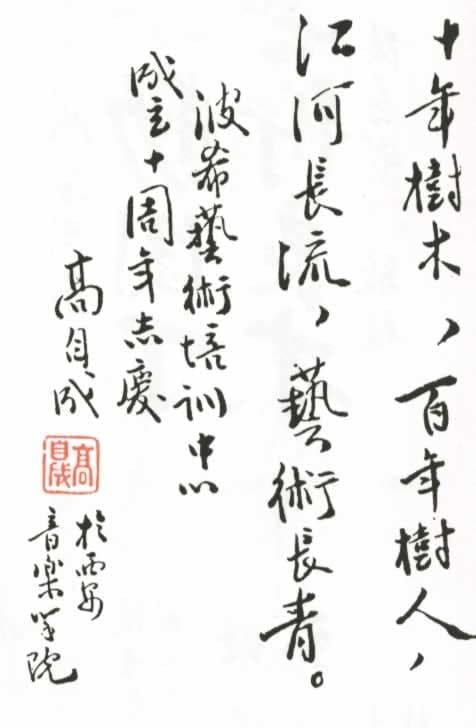 十年樹木，百年樹人，
江河長流，藝術長青。
波希藝術培训中心
成立十周年志慶
高自成
高自成
於西安
音樂学院